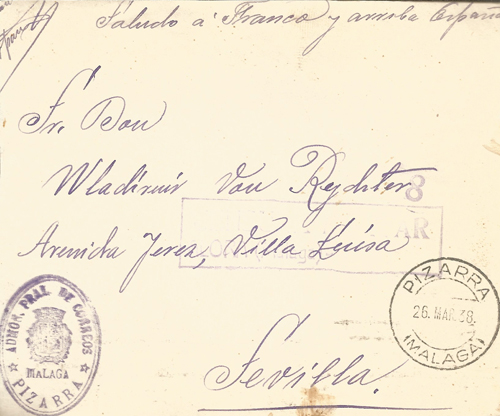 Saludo á Franco y arriba España
Sr. Don
Wladimir von Rychter
8
AR
Avenida Jerez, Villa Luisa
PIZARRA
26. MAR. 38.
(MALAGA)
ADMON. PRAL. DE CORREOS
MALAGA
PIZARRA
Sevilla.